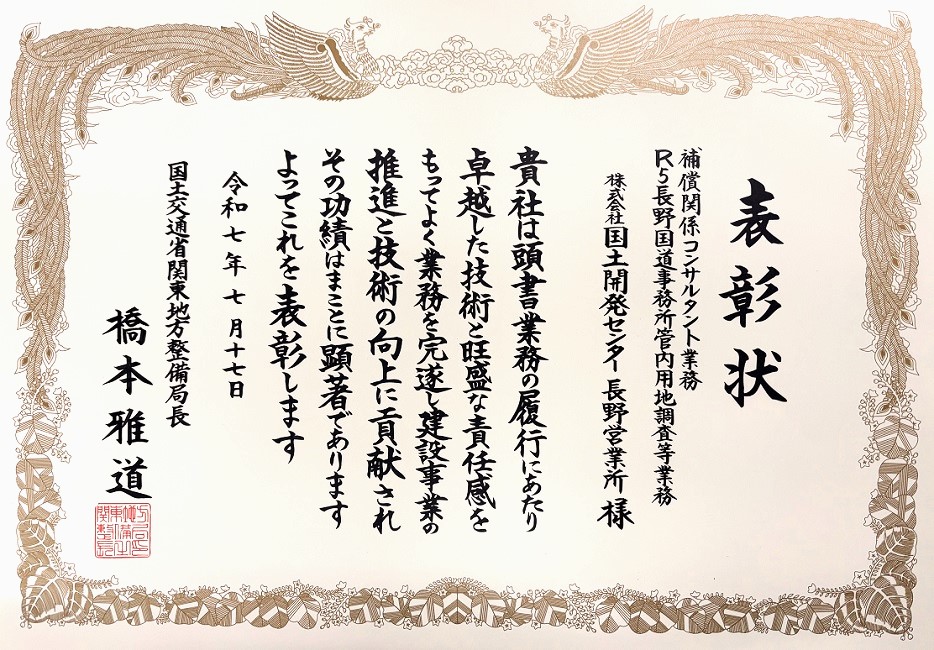 表彰状
補償関係コンサルタント業務
R5長野国道事務所管内用地調査等業務
株式会社国土開発センター長野営業所 様
貴社は頭書業務の履行にあたり
卓越した技術と旺盛な責任感を
もってよく業務を完遂し建設事業の
推進と技術の向上に貢献され
その功績はまことに顕著であります
よってこれを表彰します
令和七年七月十七日
国土交通省関東地方整備局長
橋本雅道